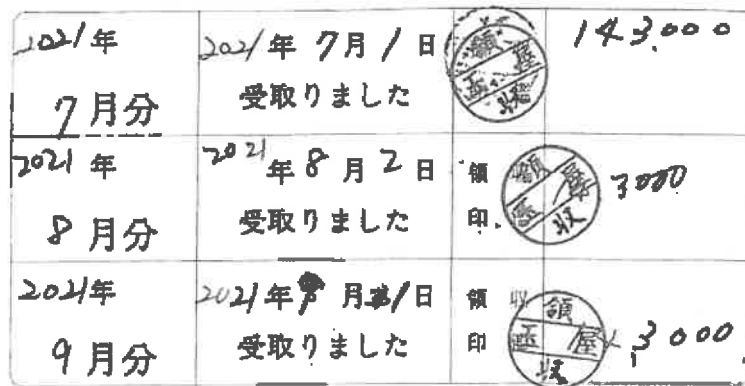 2021年
7月分
2021年7月1日
受取りました
143,000
2021年
8月分
2021年8月2日
受取りました
領
印
3000
2021年
9月分
2021年 月 1日
受取りました
領収
印
3000